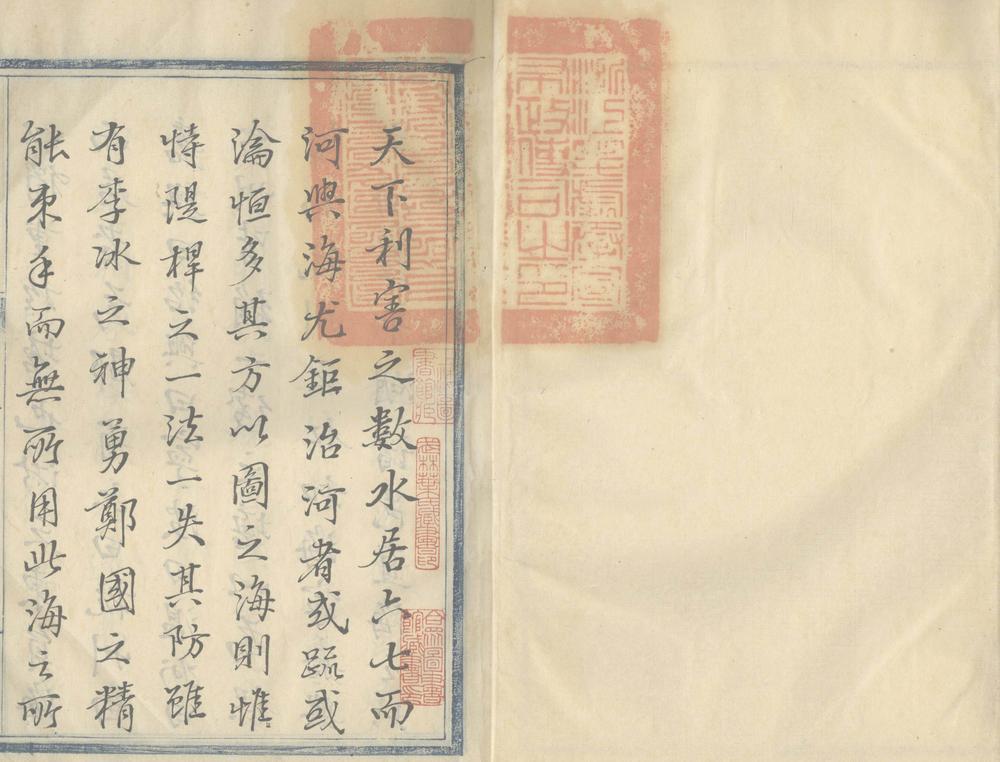 天下利害之數水居六七而
河與海尤鉅治河者或疏或
瀹恒多其方以圖之海則惟
恃隄捍之一法一失其防雖
有李冰之神勇鄭國之精
能束手而無所用此海之所
武林葉氏藏書印
合眾圖書館藏書印